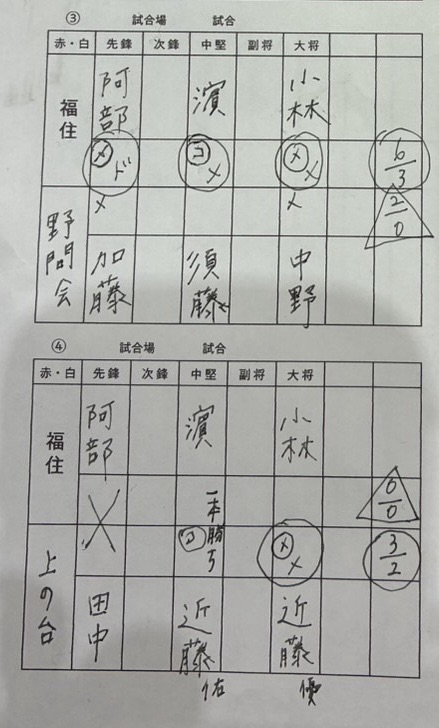 ③ 試合場 試合
赤・白 先鋒 次鋒 中堅 副将 大将
福住 阿部 濱 小林
メド コメ メメ 6/3
メ メ 2/0
野間会 加藤 須藤 中野
④ 試合場 試合
赤・白 先鋒 次鋒 中堅 副将 大将
福住 阿部 濱 小林
一本勝ち 0/0
コ メメ 3/2
上の台 田中 近藤佑 近藤優